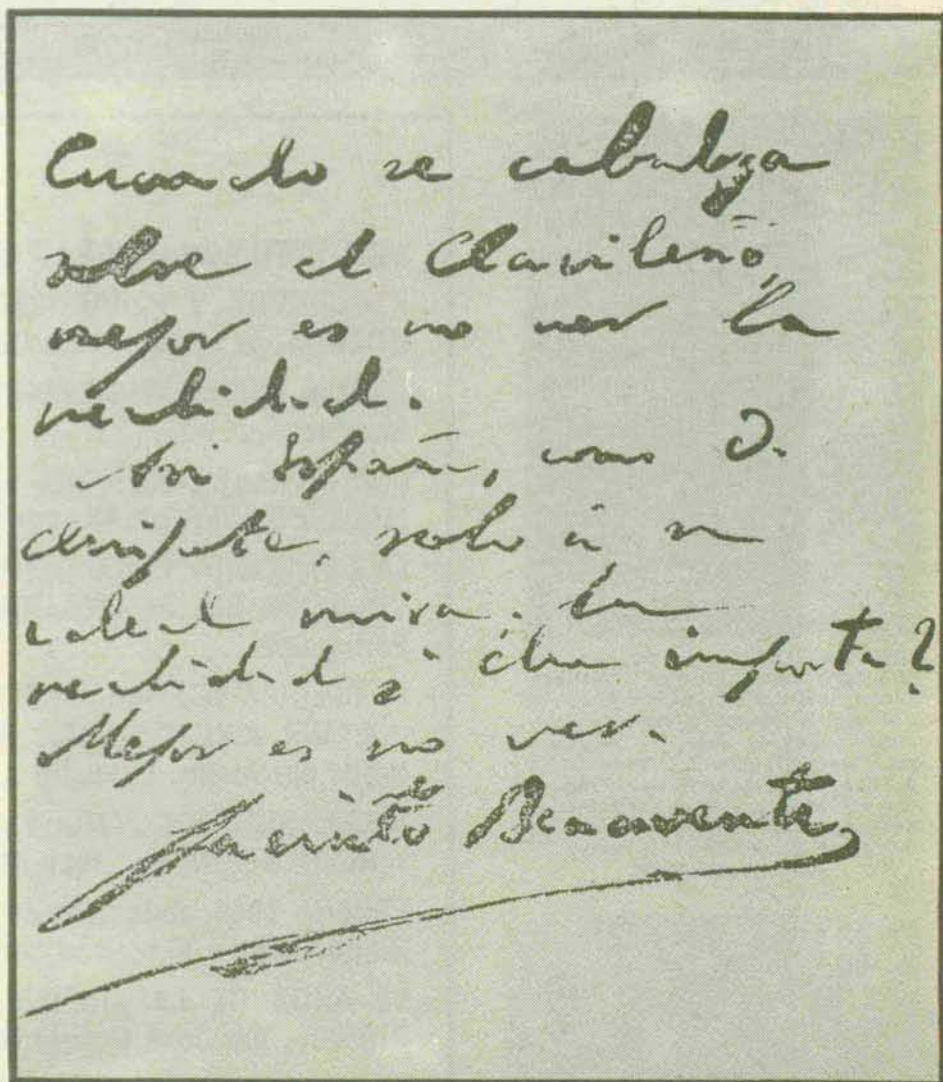 Cuando se cabalga
sobre el Clavileño,
mejor es no ver la
realidad.
Asi España, como D.
Quijote, solo á su
ideal mira. La
realidad ¿Que importa?
Mejor es no ver.
Jacinto Benavente